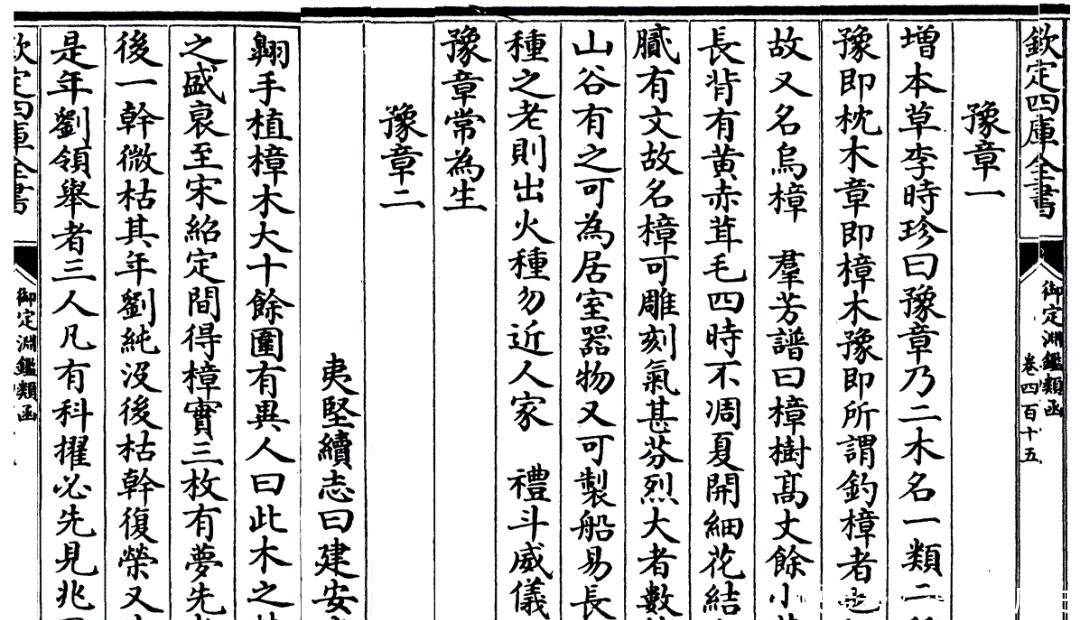 欽定四庫全書
御定淵鑑類函
卷四百十五
豫章一
增本草李時珍曰豫章乃二木名一類二
豫即枕木章即樟木豫即所謂釣樟者也
故又名烏樟　羣芳譜曰樟樹髙丈餘小
長背有黃赤茸毛四時不凋夏開細花結
膩有文故名樟可雕刻氣甚芬烈大者數
山谷有之可為居室器物又可製船易長
種之老則出火種勿近人家　禮斗威儀
豫章常為生
豫章二
夷堅續志曰建安
翱手植樟木大十餘圍有異人曰此木之
之盛衰至宋紹定間得樟實三枚有夢先
後一幹微枯其年劉純沒後枯幹復榮又
是年劉領舉者三人凡有科擢必先見兆
欽定四庫全書
御定淵鑑類函